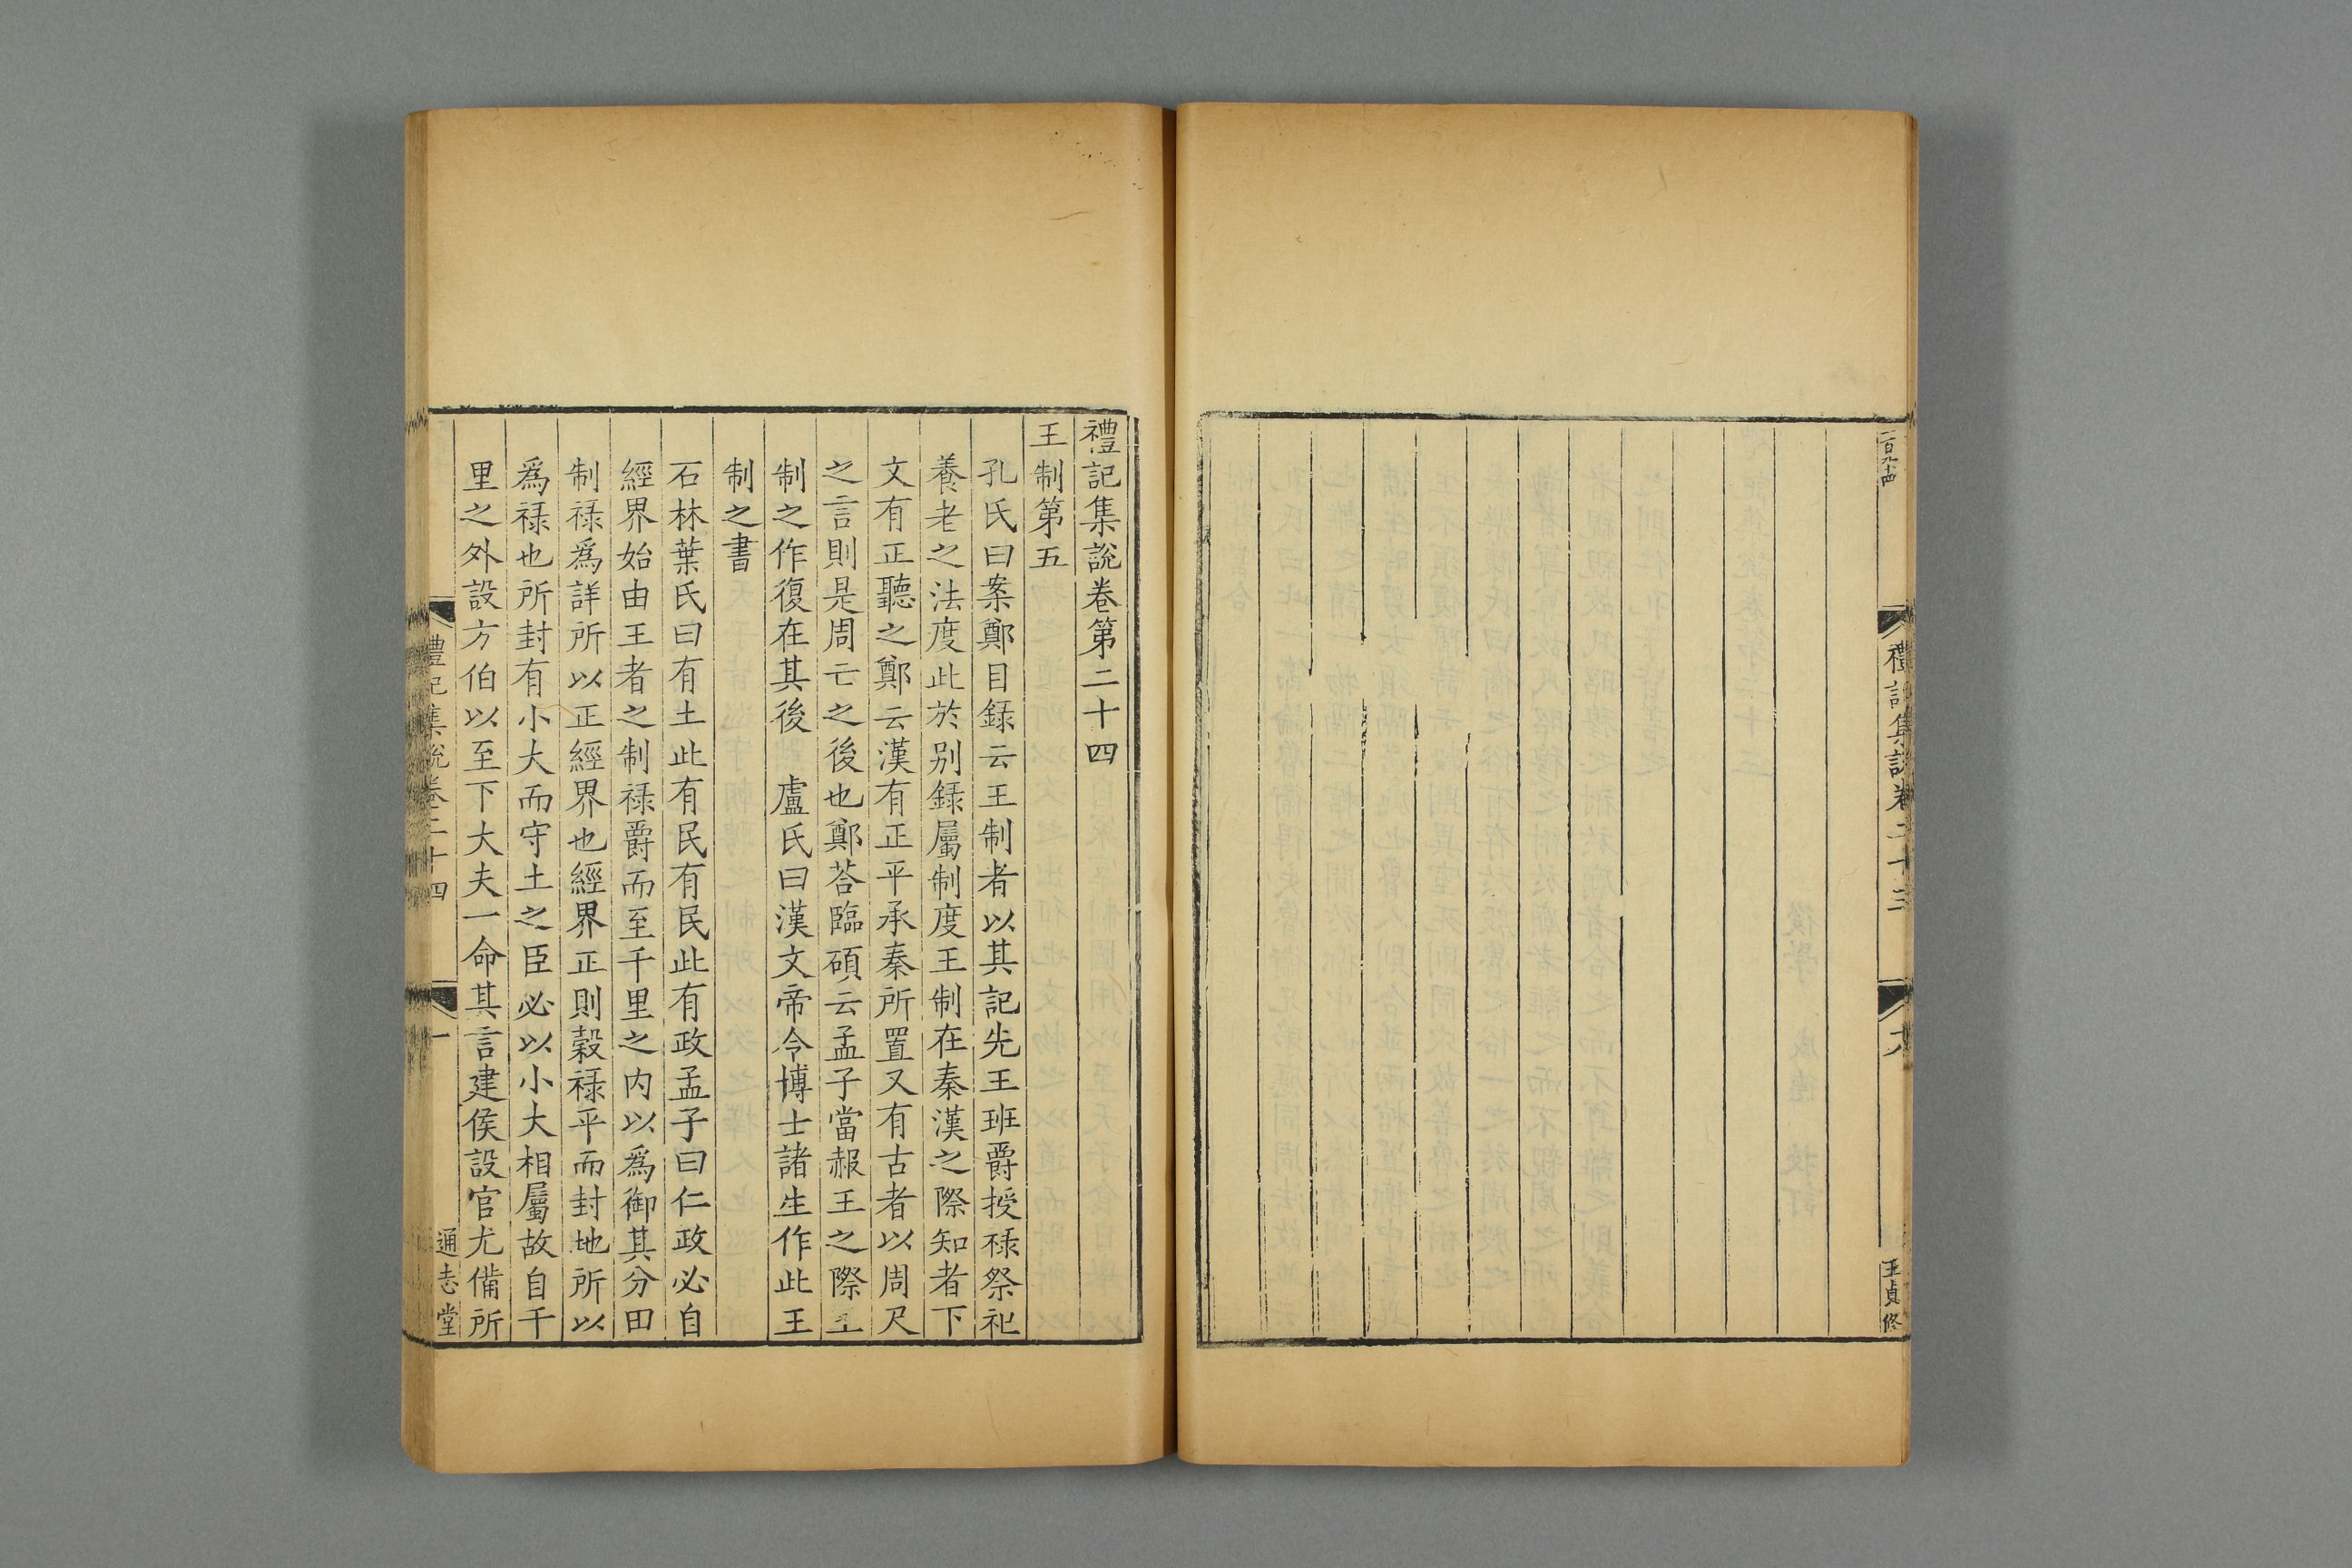 一百九十四
禮記集說卷二十三
王貞修
禮記集說卷第二十四
王制第五
孔氏曰案鄭目録云王制者以其記先王班爵授祿祭祀
養老之法度此於别録屬制度王制在秦漢之際知者下
文有正聽之鄭云漢有正平承秦所置又有古者以周尺
之言則是周亡之後也鄭荅臨碩云孟子當赧王之際王
制之作復在其後　盧氏曰漢文帝令博士諸生作此王
制之書
石林葉氏曰有土此有民有民此有政孟子曰仁政必自
經界始由王者之制祿爵而至千里之内以爲御其分田
制祿爲詳所以正經界也經界正則穀祿平而封地所以
爲祿也所封有小大而守土之臣必以小大相屬故自千
里之外設方伯以至下大夫一命其言建侯設官尤備所
禮記集說卷二十四
一
通志堂